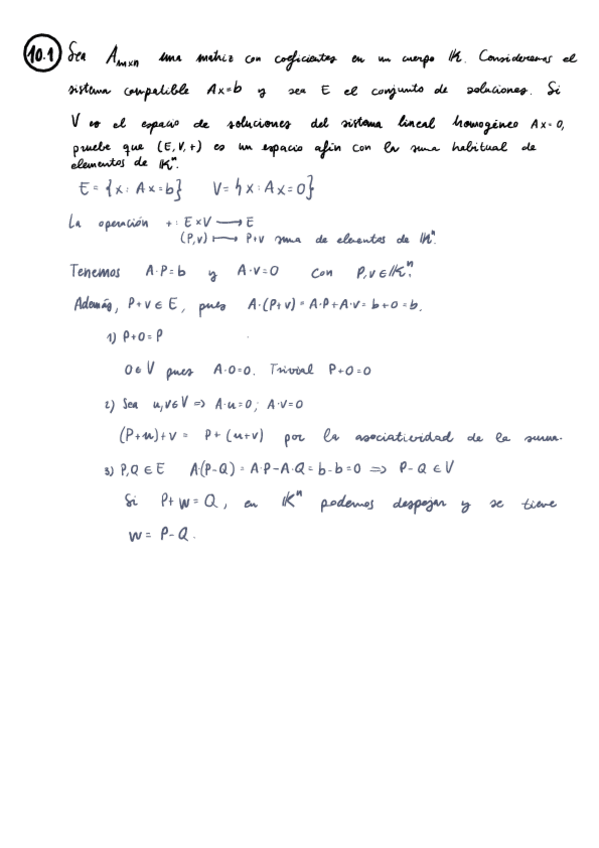 10.1 Sea Aₘₓₙ una matriz con coeficientes en un cuerpo 𝕂. Consideremos el
sistema compatible Ax=b y sea E el conjunto de soluciones. Si
V es el espacio de soluciones del sistema lineal homogéneo Ax=0,
pruebe que (E,V,+) es un espacio afín con la suma habitual de
elementos de 𝕂ⁿ.
E={x: Ax=b} V={x: Ax=0}
La operación +: E×V ⟶ E
(P,v) ⟼ P+v suma de elementos de 𝕂ⁿ.
Tenemos A·P=b y A·v=0 con P,v∈𝕂ⁿ.
Además, P+v∈E, pues A·(P+v)=A·P+A·v=b+0=b.
1) P+0=P
0∈V pues A·0=0. Trivial P+0=0
2) Sea u,v∈V ⇒ A·u=0; A·v=0
(P+u)+v = P+(u+v) por la asociatividad de la suma.
3) P,Q∈E A(P-Q)=A·P-A·Q=b-b=0 ⇒ P-Q∈V
Si P+w=Q, en 𝕂ⁿ podemos despejar y se tiene
w=P-Q.